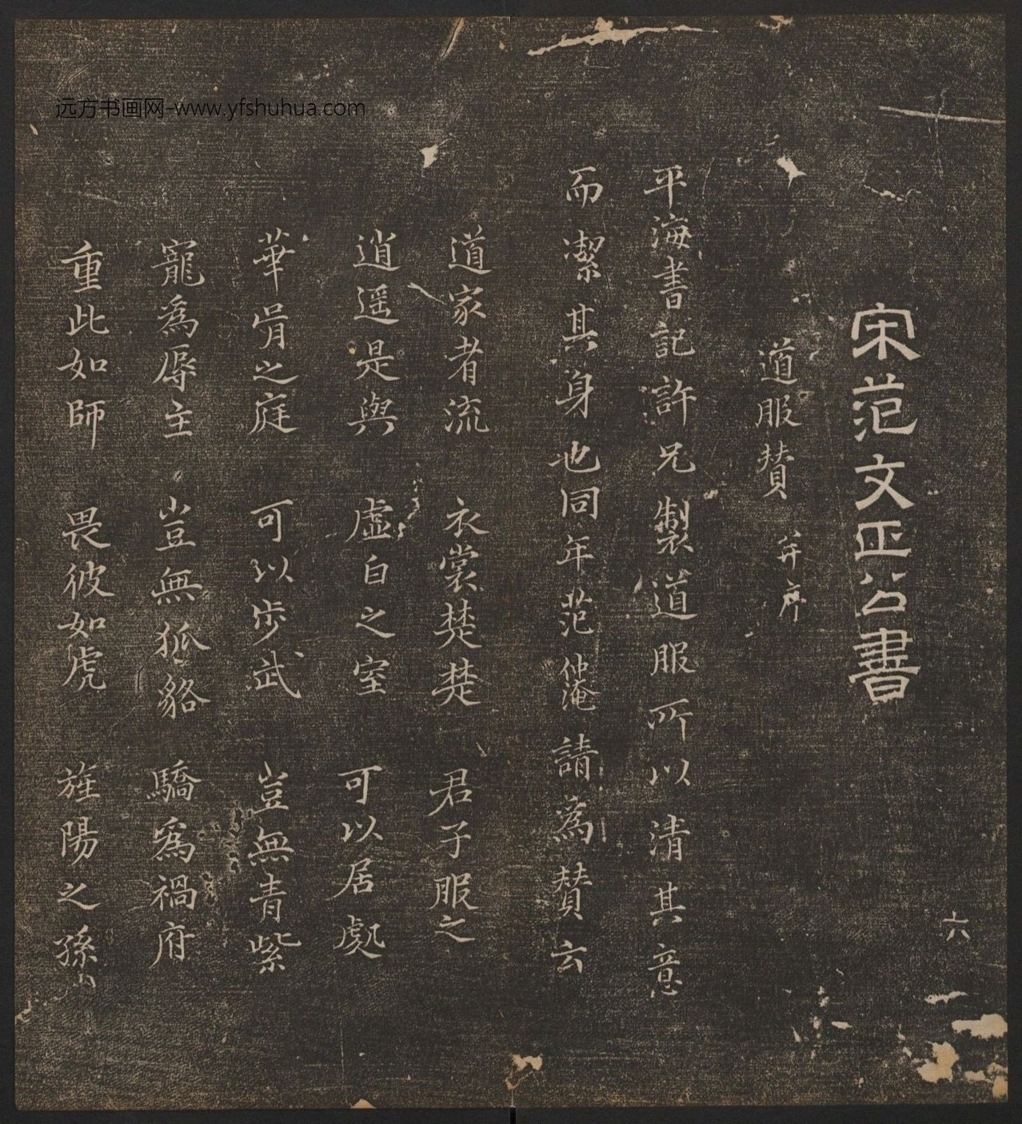 远方书画网-www.yfshuhua.com
六
宋范文正公書
道服贊 并序
平海書記許兄製道服所以清其意
而潔其身也同年范仲淹請為贊云
道家者流 衣裳楚楚 君子服之
逍遥是與 虛白之室 可以居處
華胥之庭 可以步武 豈無青紫
寵為辱主 豈無狐貉 驕為禍府
重此如師 畏彼如虎 旌陽之孫